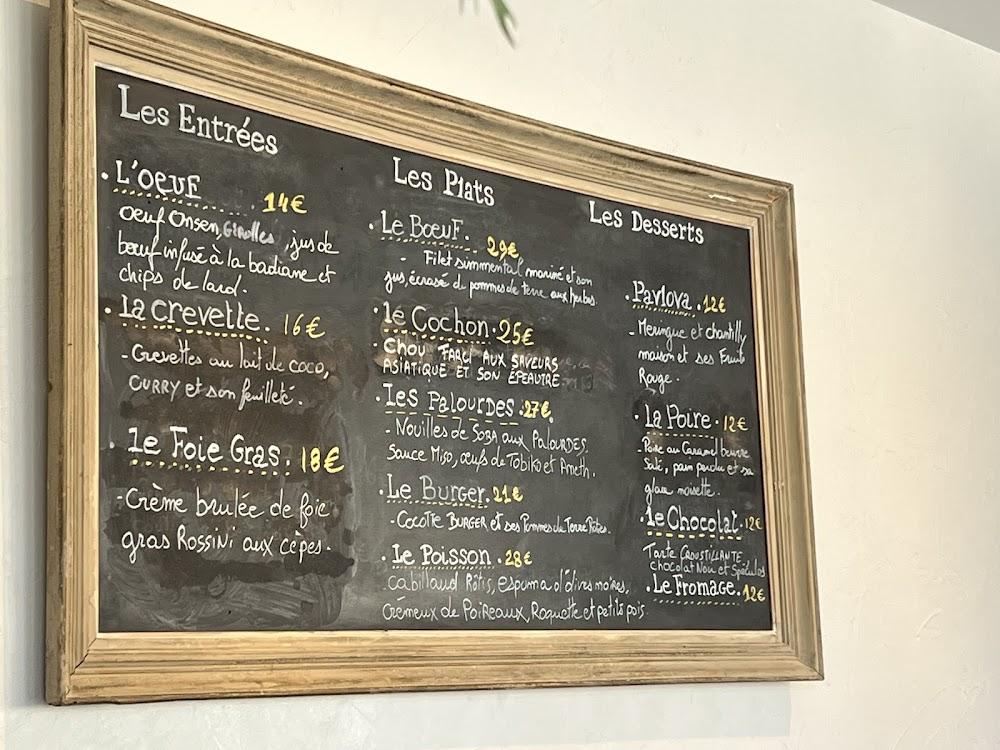 Les Entrées
• L'OEUF 14€
Oeuf Onsen, Girolles, jus de
bœuf infusé à la badiane et
chips de lard.
• La crevette. 16€
- Crevettes au lait de coco,
CURRY et son feuilleté.
le Foie Gras. 18€
- Crème brulée de foie
gras Rossini aux cèpes.
Les Plats
• Le BœuF. 29€
- Filet simmental mariné et son
jus, écrasé de pommes de terre aux herbes.
• le Cochon. 25€
- Chou FARCI AUX SAVEURS
ASIATIQUE ET SON ÉPEAUTRE.
• Les Palourdes. 27€
- Nouilles de SOBA aux PALOURDES,
Sauce Miso, œufs de Tobiko et Aneth.
• Le Burger. 21€
- COCOTTE BURGER et ses Pommes de Terre Frites.
• Le Poisson. 28€
Cabillaud Rôtis, espuma d'olives noires,
Crémeux de Poireaux, Roquette et petits pois.
Les Desserts
• Pavlova. 12€
- Meringue et chantilly
maison et ses Fruits
Rouge.
• la Poire. 12€
- Poire au Caramel beurre
Salé, pain perdu et sa
glace noisette.
• le Chocolat. 12€
Tarte CROUSTILLANTE
chocolat Noir et Spéculos
• Le Fromage. 12€